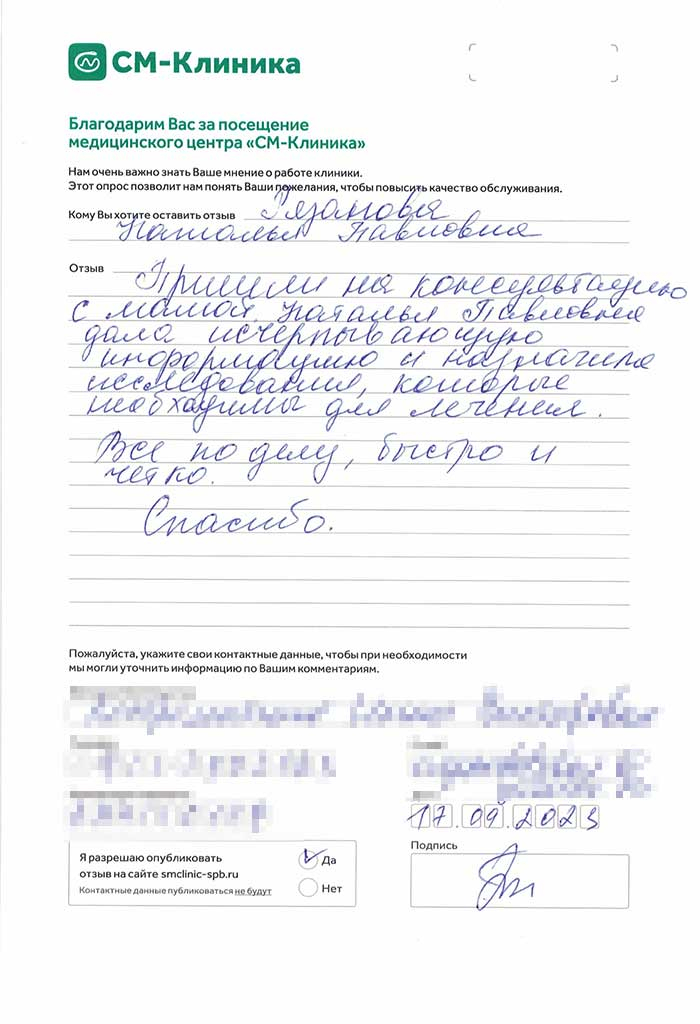 СМ-Клиника
Благодарим Вас за посещение
медицинского центра «СМ-Клиника»
Нам очень важно знать Ваше мнение о работе клиники.
Этот опрос позволит нам понять Ваши пожелания, чтобы повысить качество обслуживания.
Кому Вы хотите оставить отзыв Рязановья
Наталья Павловня
Отзыв Пришли на консультацию
с мамой. Наталья Павловня
дала исчерпывающую
информацию и назначила
исследования, которые
необходимы для лечения.
Все по делу, быстро и
четко.
Спасибо.
Пожалуйста, укажите свои контактные данные, чтобы при необходимости
мы могли уточнить информацию по Вашим комментариям.
17.09.2023
Я разрешаю опубликовать
отзыв на сайте smclinic-spb.ru
Контактные данные публиковаться не будут
Да
Нет
Подпись